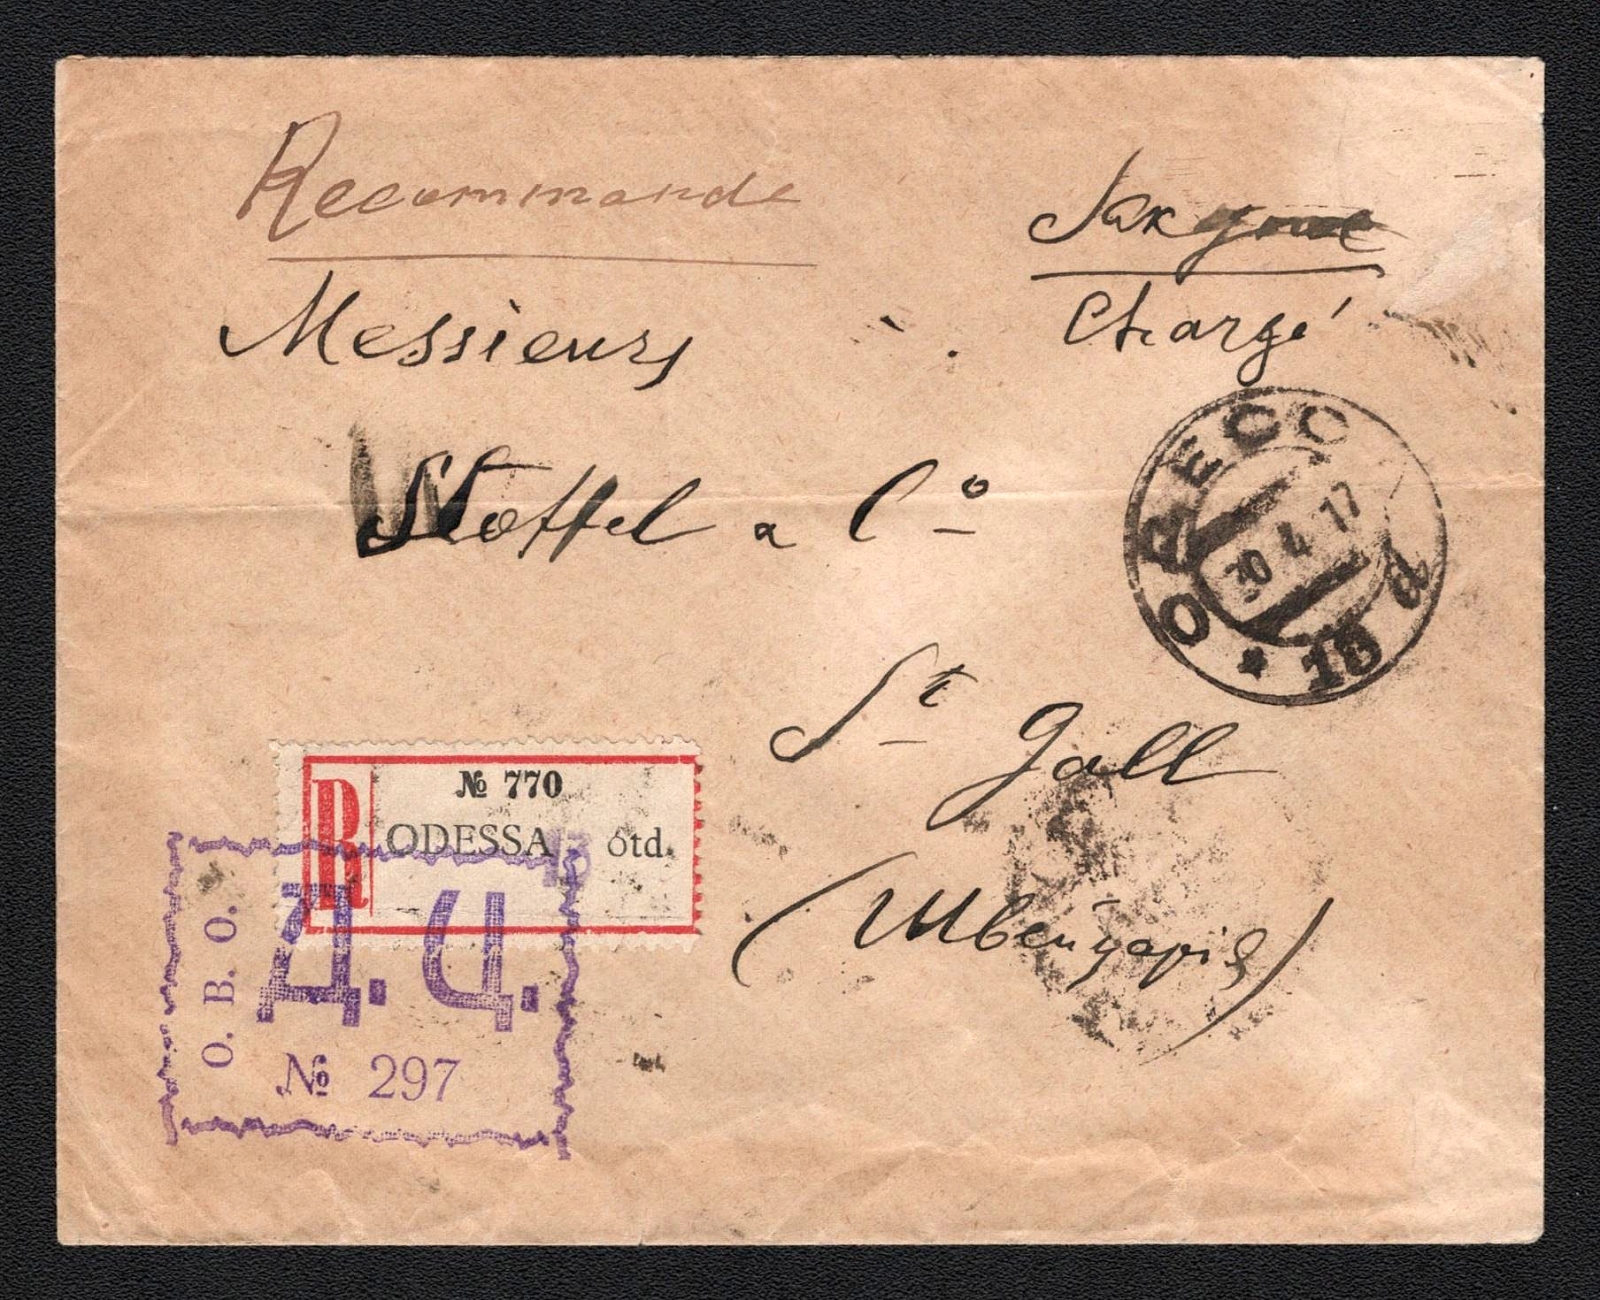 Recommande
Заказное
Chargé
Messieurs
Stoffel a Cº
St Gall
(Швейцарія)
ОДЕСС
30 4 17
* 18 d
R
№ 770
ODESSA otd.
О. В. О.
Д. Ц.
№ 297